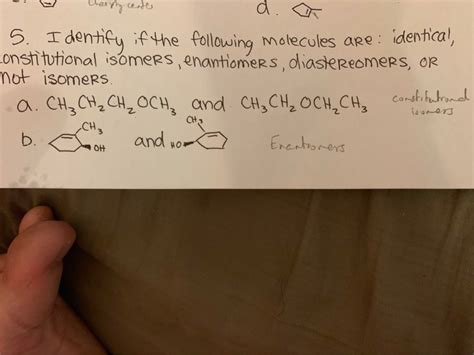 d.
5. Identify if the following molecules are: identical,
constitutional isomers, enantiomers, diastereomers, or
not isomers.
a. CH3CH2CH2OCH3 and CH3CH2OCH2CH3 constitutional isomers
b. CH3 OH and HO CH3 Enantiomers